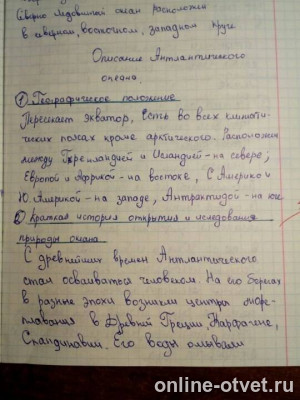 Северо Ледовитый океан расположен
в северном, восточном, западном круге
Описание Антлантического
океана.
1) Географическое положение
Пересекает экватор, есть во всех климати-
ческих поясах кроме арктического. Расположен
между Гренландией и Исландией - на севере;
Европой и Африкой - на востоке, С Америкой
Ю. Америкой - на западе, Антрактидой - на юге
2) Краткая история открытия и иследования
природы океана
С древнейших времен Антлантический
стал осваиваться человеком. На его берегах
в разные эпохи возникли центры море-
плавания в Древней Греции, Карфагене,
Скандинавии. Его воды омывали
online-otvet.ru